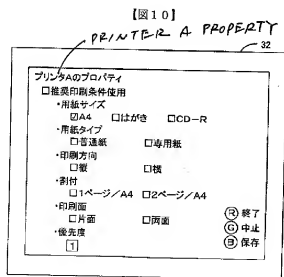 【図10】
PRINTER A PROPERTY
32
プリンタAのプロパティ
□推奨印刷条件使用
・用紙サイズ
☑A4 □はがき □CD−R
・用紙タイプ
□普通紙 □専用紙
・印刷方向
□縦 □横
・割付
□1ページ/A4 □2ページ/A4
・印刷面
□片面 □両面
・優先度
1
Ⓡ 終了
Ⓖ 中止
Ⓑ 保存